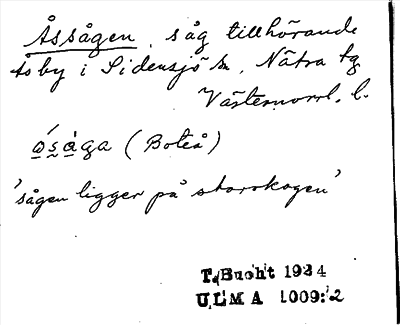 Åssågen, såg tillhörande
Ås by i Sidensjö sn, Nätra tg
Västernorrl. l.
ɷ́sàga (Boteå)
'sågen ligger på storskogen'
T. Bucht 1934
ULMA 1009:2